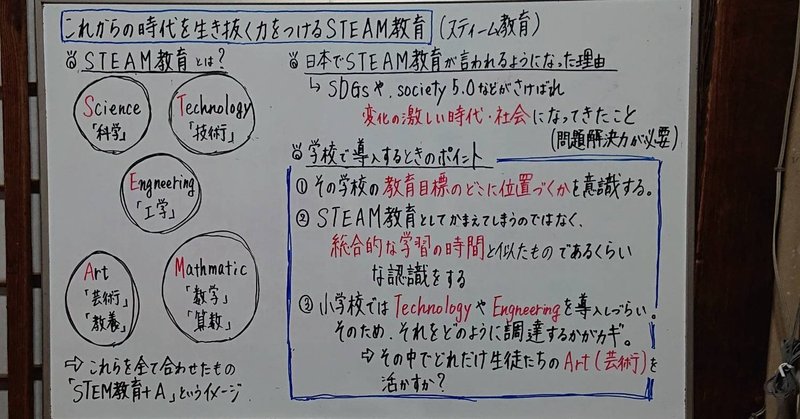 これからの時代を生き抜く力をつけるSTEAM教育(スティーム教育)
STEAM教育とは?
Science
「科学」
Technology
「技術」
Engneering
「工学」
Art
「芸術」
「教養」
Mathmatic
「数学」
「算数」
⇨ これらを全て合わせたもの
「STEM教育+A」というイメージ
日本でSTEAM教育が言われるようになった理由
↳ SDGsや、society 5.0などがさけばれ
変化の激しい時代・社会になってきたこと
(問題解決力が必要)
学校で導入するときのポイント
① その学校の教育目標のどこに位置づくかを意識する。
② STEAM教育としてかまえてしまうのではなく、
総合的な学習の時間と似たものであるくらい
な認識をする
③ 小学校ではTechnologyやEngneeringを導入しづらい。
そのため、それをどのように調達するかがカギ。
⇨ その中でどれだけ生徒たちのArt(芸術)を
活かすか?